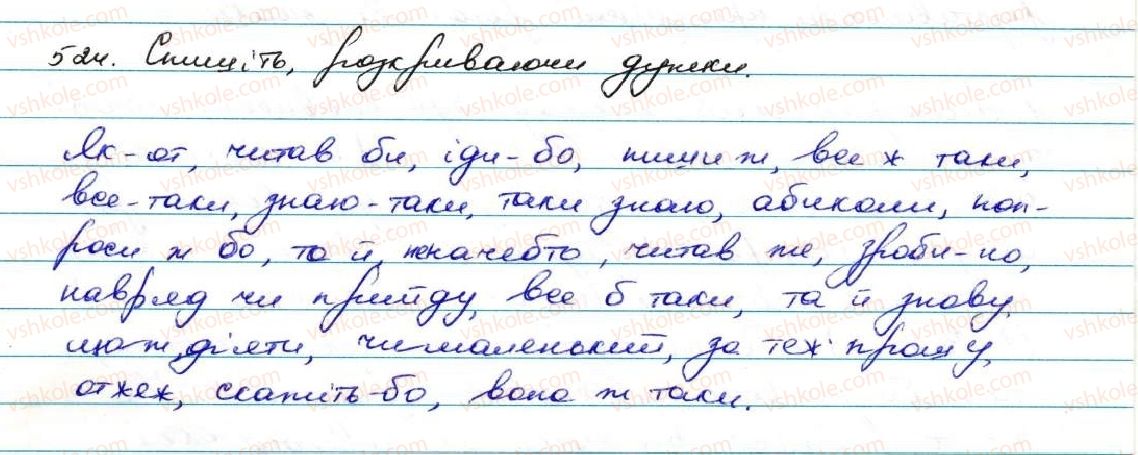 524. Спишіть, розкриваючи дужки.
Як-от, читав би, іди-бо, пиши ж, все ж таки,
все-таки, знаю-таки, таки знаю, абиколи, поп-
роси ж бо, то й, неначебто, читав же, зроби-но,
навряд чи прийду, все б таки, та й знову,
що ж, діяти, чималенький, за теж прошу,
отжеж, скажіть-бо, вона ж таки.